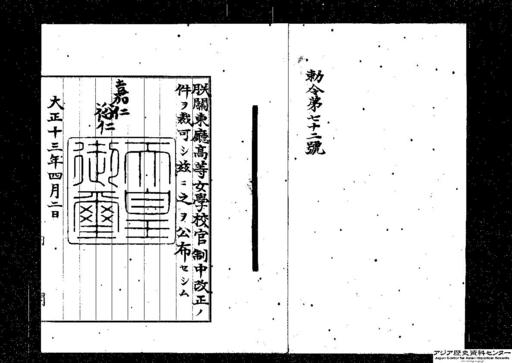 勅令第七十二號
朕關東廳高等女學校官制中改正ノ
件ヲ裁可シ茲ニ之ヲ公布セシム
嘉仁
裕仁
天皇
御璽
大正十三年四月二日
アジア歴史資料センター
Japan Center for Asian Historical Records